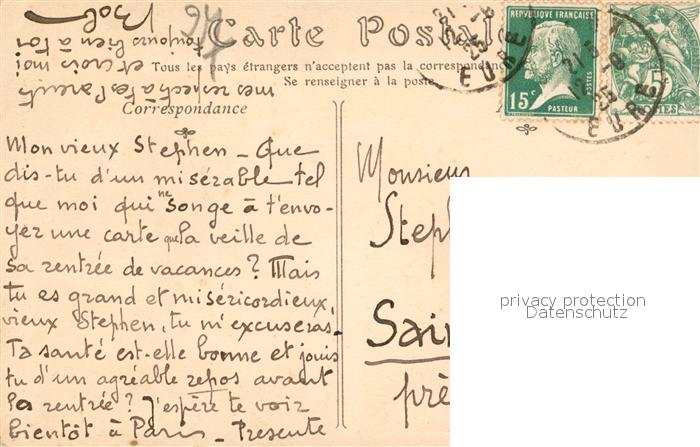 Carte Postale
Tous les pays étrangers n'acceptent pas la correspondance
Se renseigner à la poste
Correspondance
RÉPUBLIQUE FRANÇAISE
15c
POSTES
PASTEUR
5
POSTES
EURE
EURE
Mon vieux Stephen - Que
dis-tu d'un misérable tel
que moi qui ne songe à t'envo-
yer une carte que la veille de
sa rentrée de vacances ? Mais
tu es grand et miséricordieux,
vieux Stephen, tu m'excuseras -
Ta santé est-elle bonne et jouis
tu d'un agréable repos avant
la rentrée ? J'espère te voir
bientôt à Paris - Presente
mes respects à tes Parents
et crois moi
toujours bien à toi
Bob
Monsieur
Steph
Sain
prè
privacy protection
Datenschutz